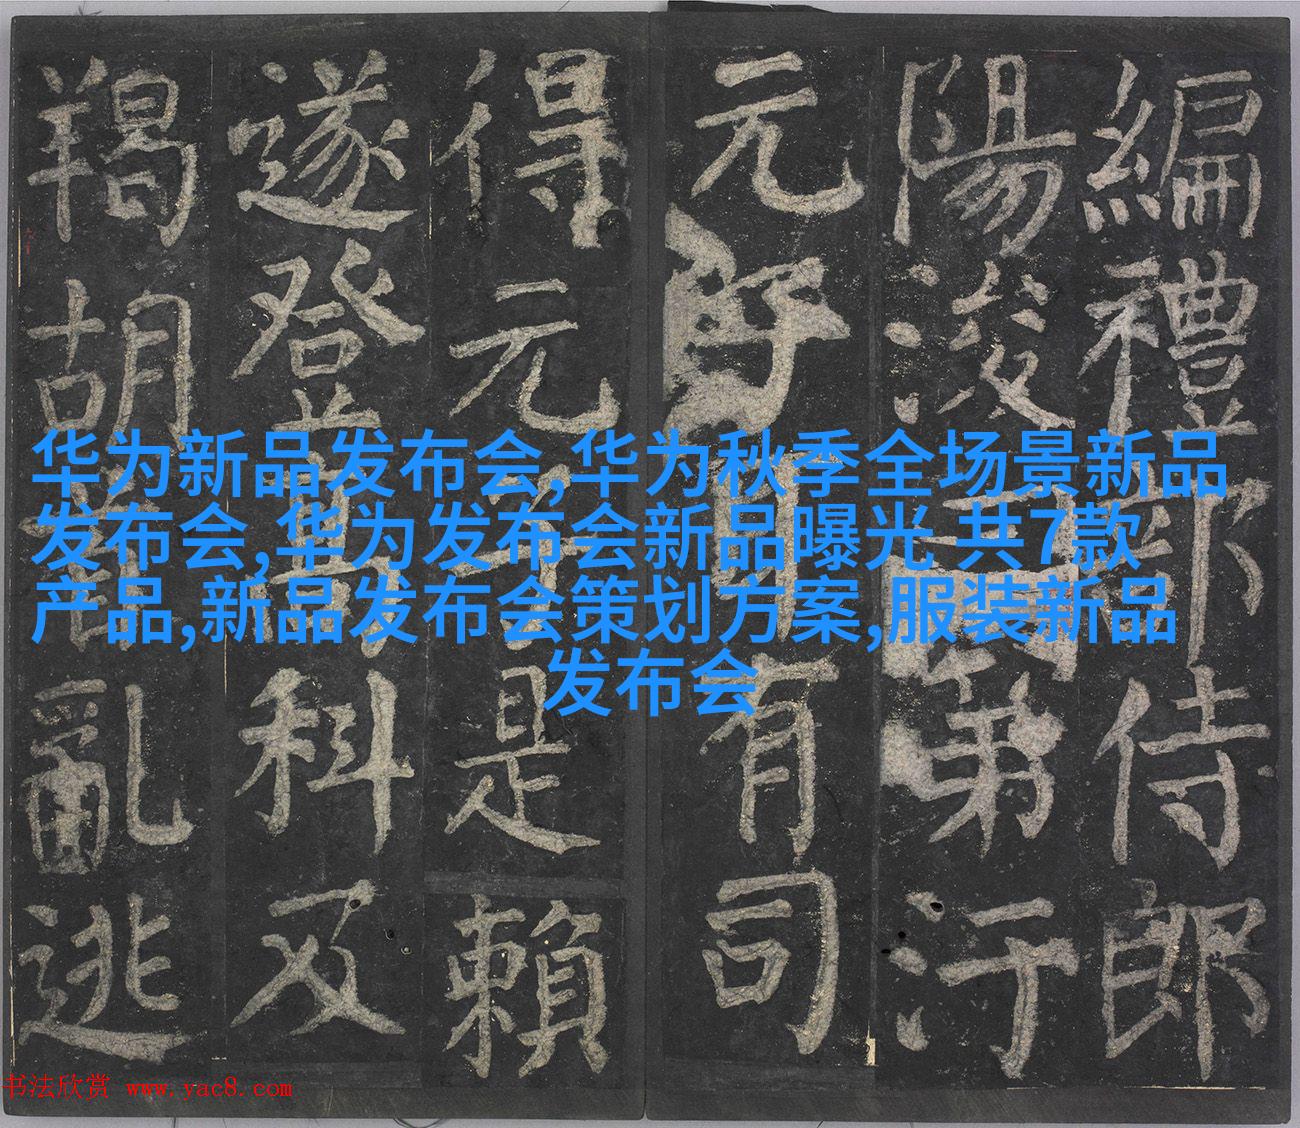 華为新品发布会,华为秋季全场景新品
发布会,华为发布会新品曝光 共7款
产品,新品发布会策划方案,服装新品
发布会
編禮部侍郎
陽浚第汙
元有司
得元子是賴
遂登高科及
羯胡首亂逃
书法欣赏 www.yac8.com